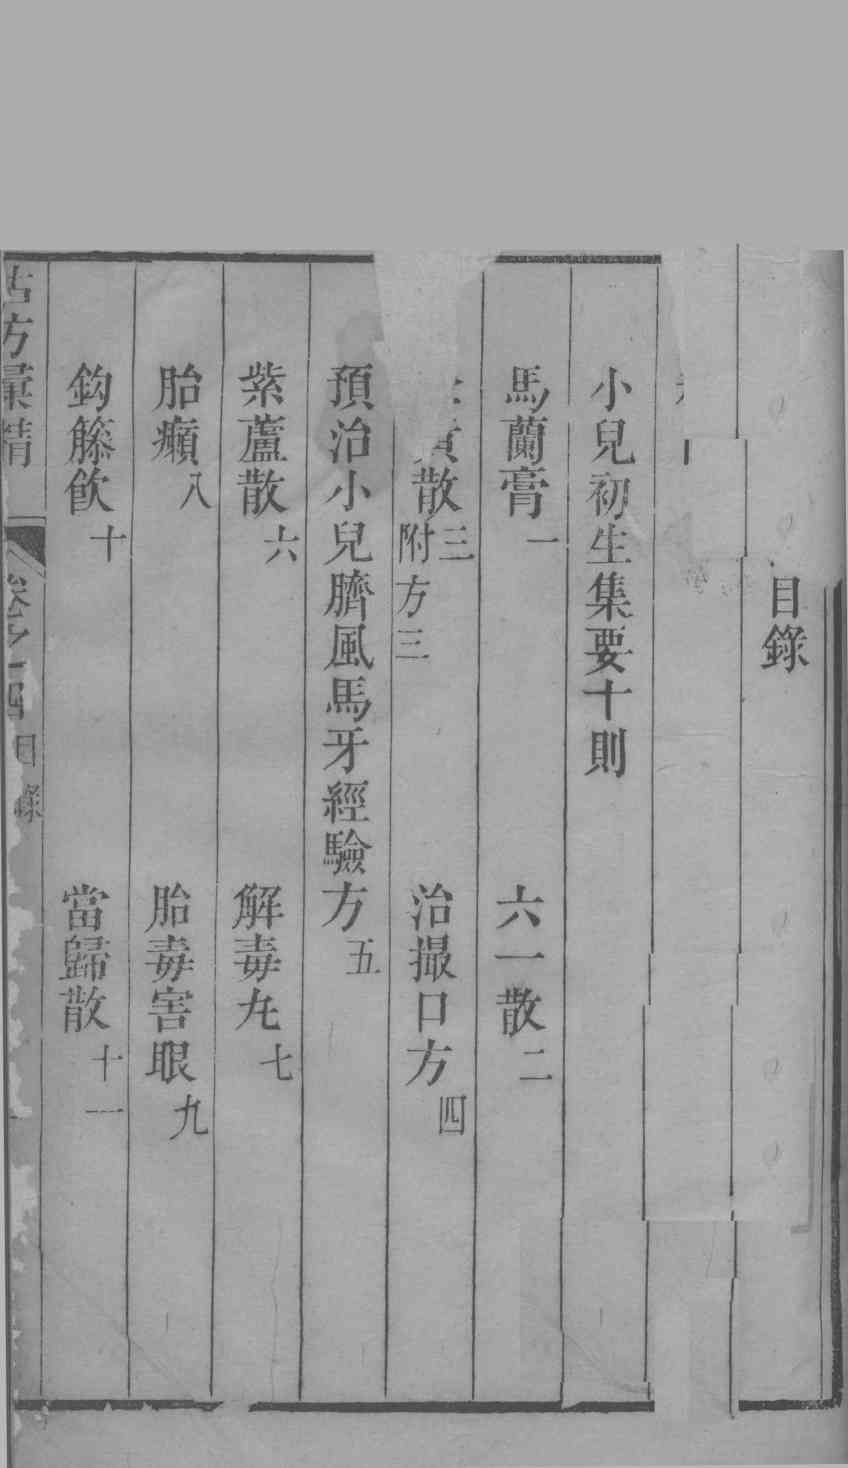 目錄
小兒初生集要十則
馬蘭膏一　六一散二
散三附方三　治撮口方四
預治小兒臍風馬牙經驗方五
紫蘆散六　解毒丸七
胎癩八　胎毒害眼九
鈎籐飮十　當歸散十一
古方彙精　卷之四　目錄